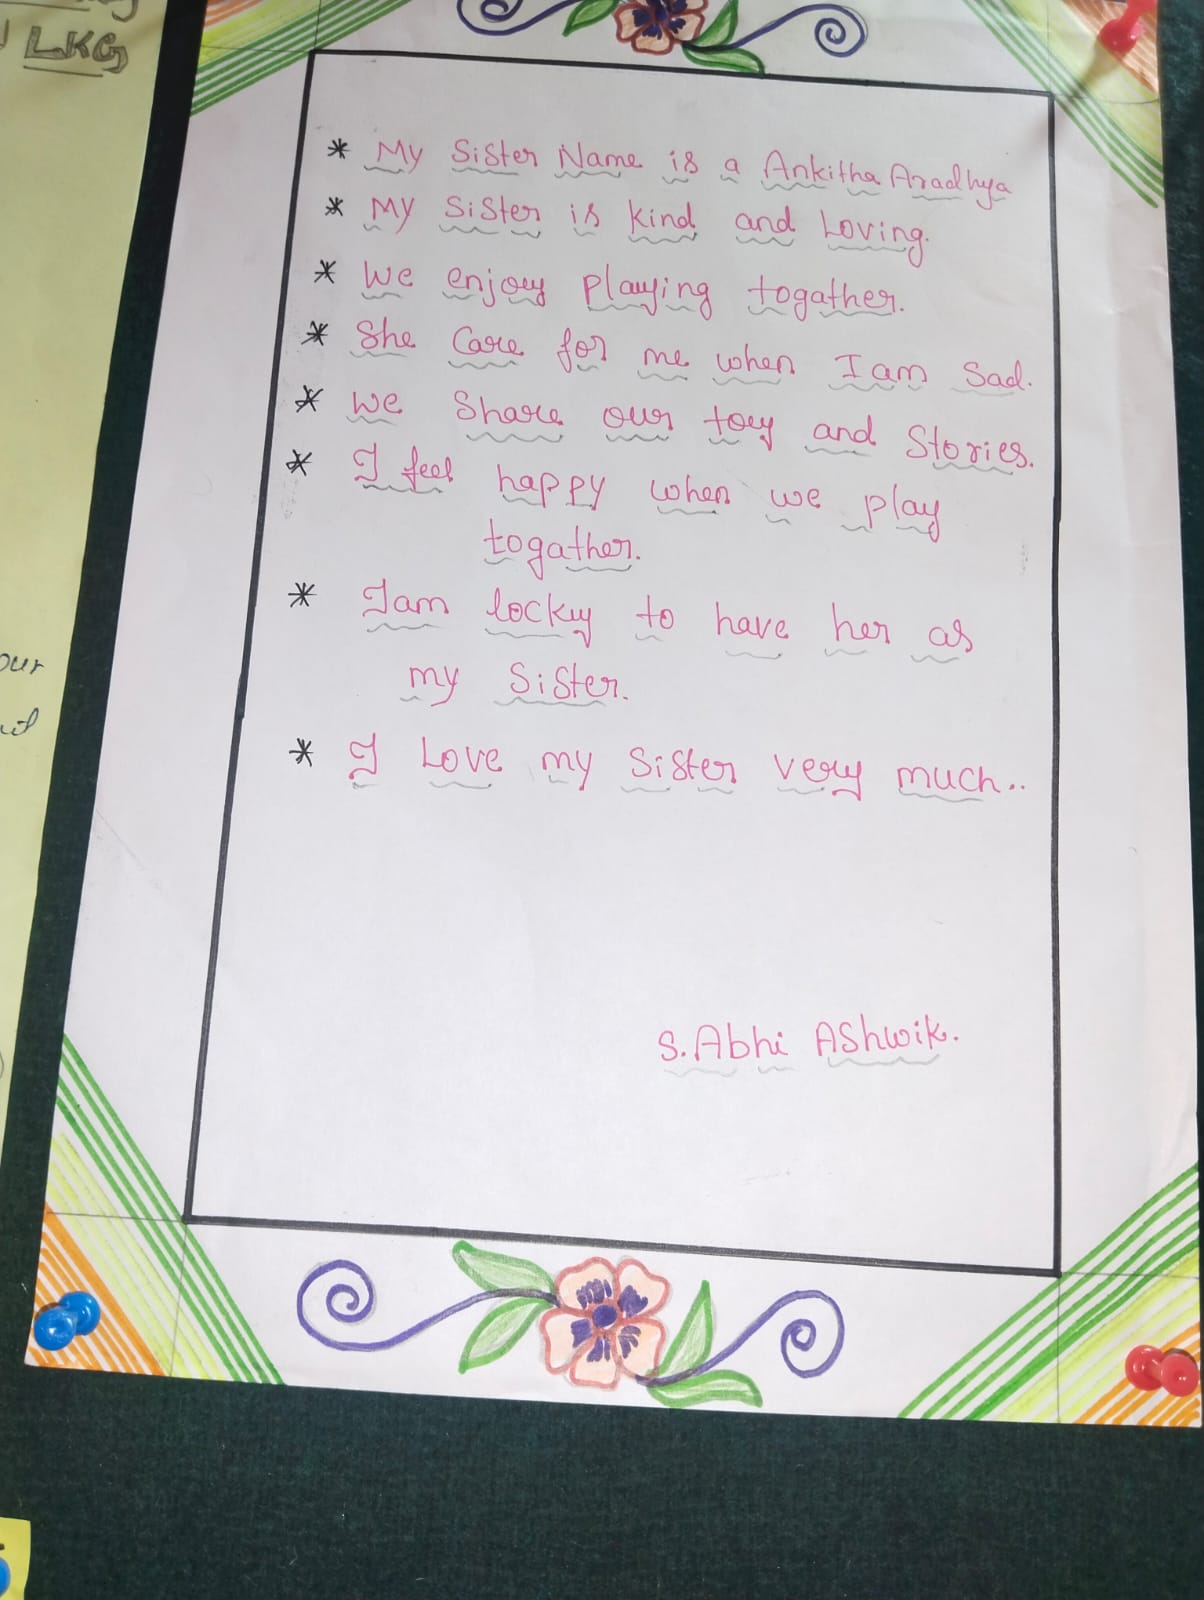 LKG
* My Sister Name is a Ankitha Aradhya
* My Sister is kind and Loving.
* We enjoy playing togather.
* She Care for me when I am Sad.
* We Share our toy and Stories.
* I feel happy when we play
togather.
* I am locky to have her as
my Sister.
* I Love my Sister very much..
S. Abhi Ashwik.